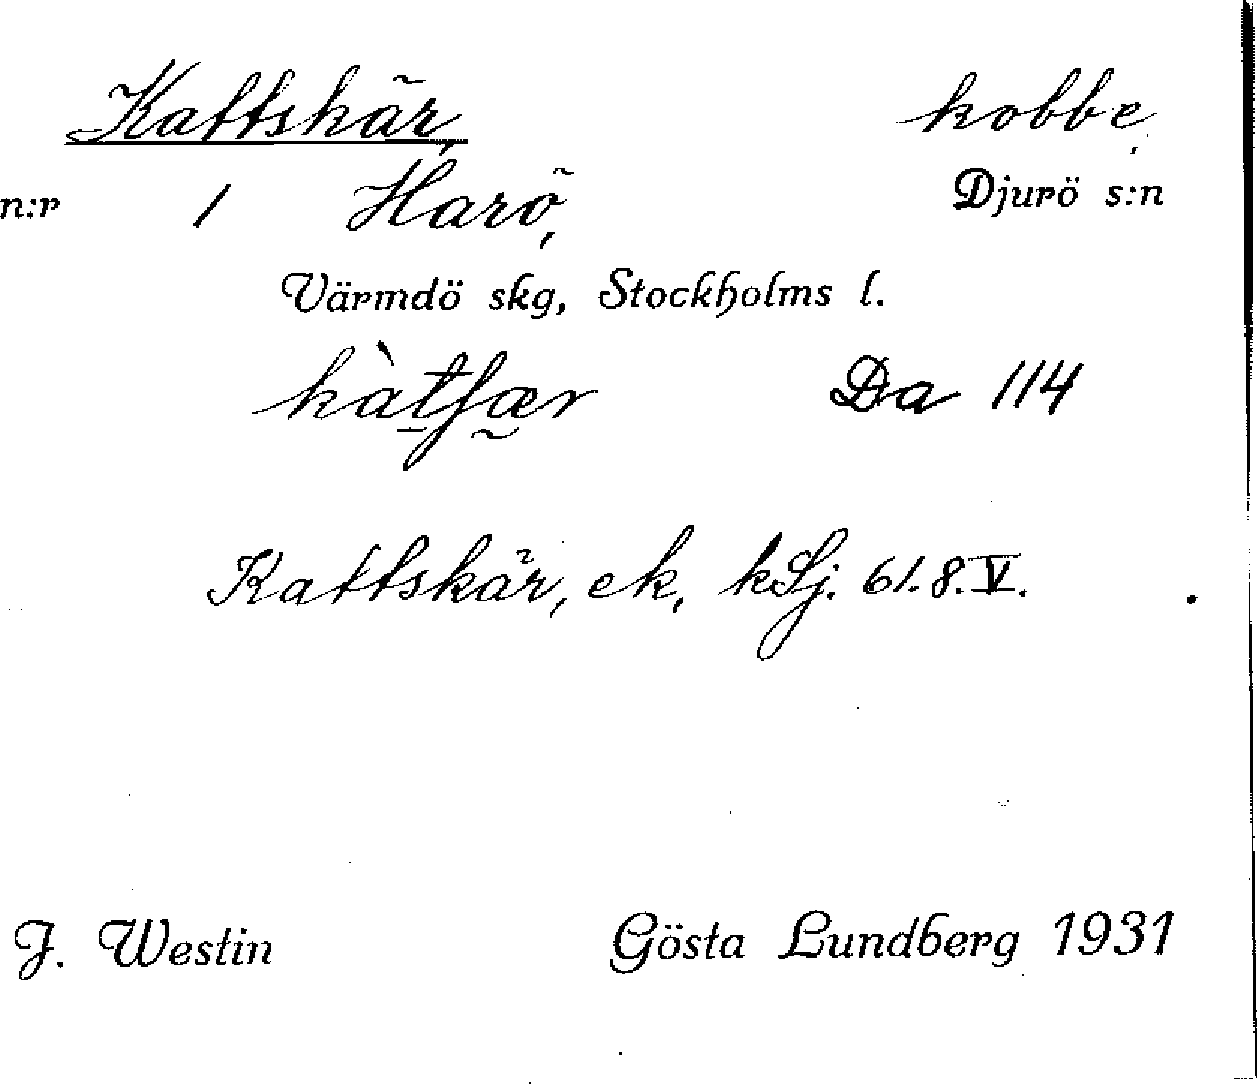 Kattskär, kobbe,
n:r 1 Harö, Djurö s:n
Värmdö skg, Stockholms l.
kàtʃær Da 114
Kattskär, ek, kSj. 61.8.V.
J. Westin Gösta Lundberg 1931